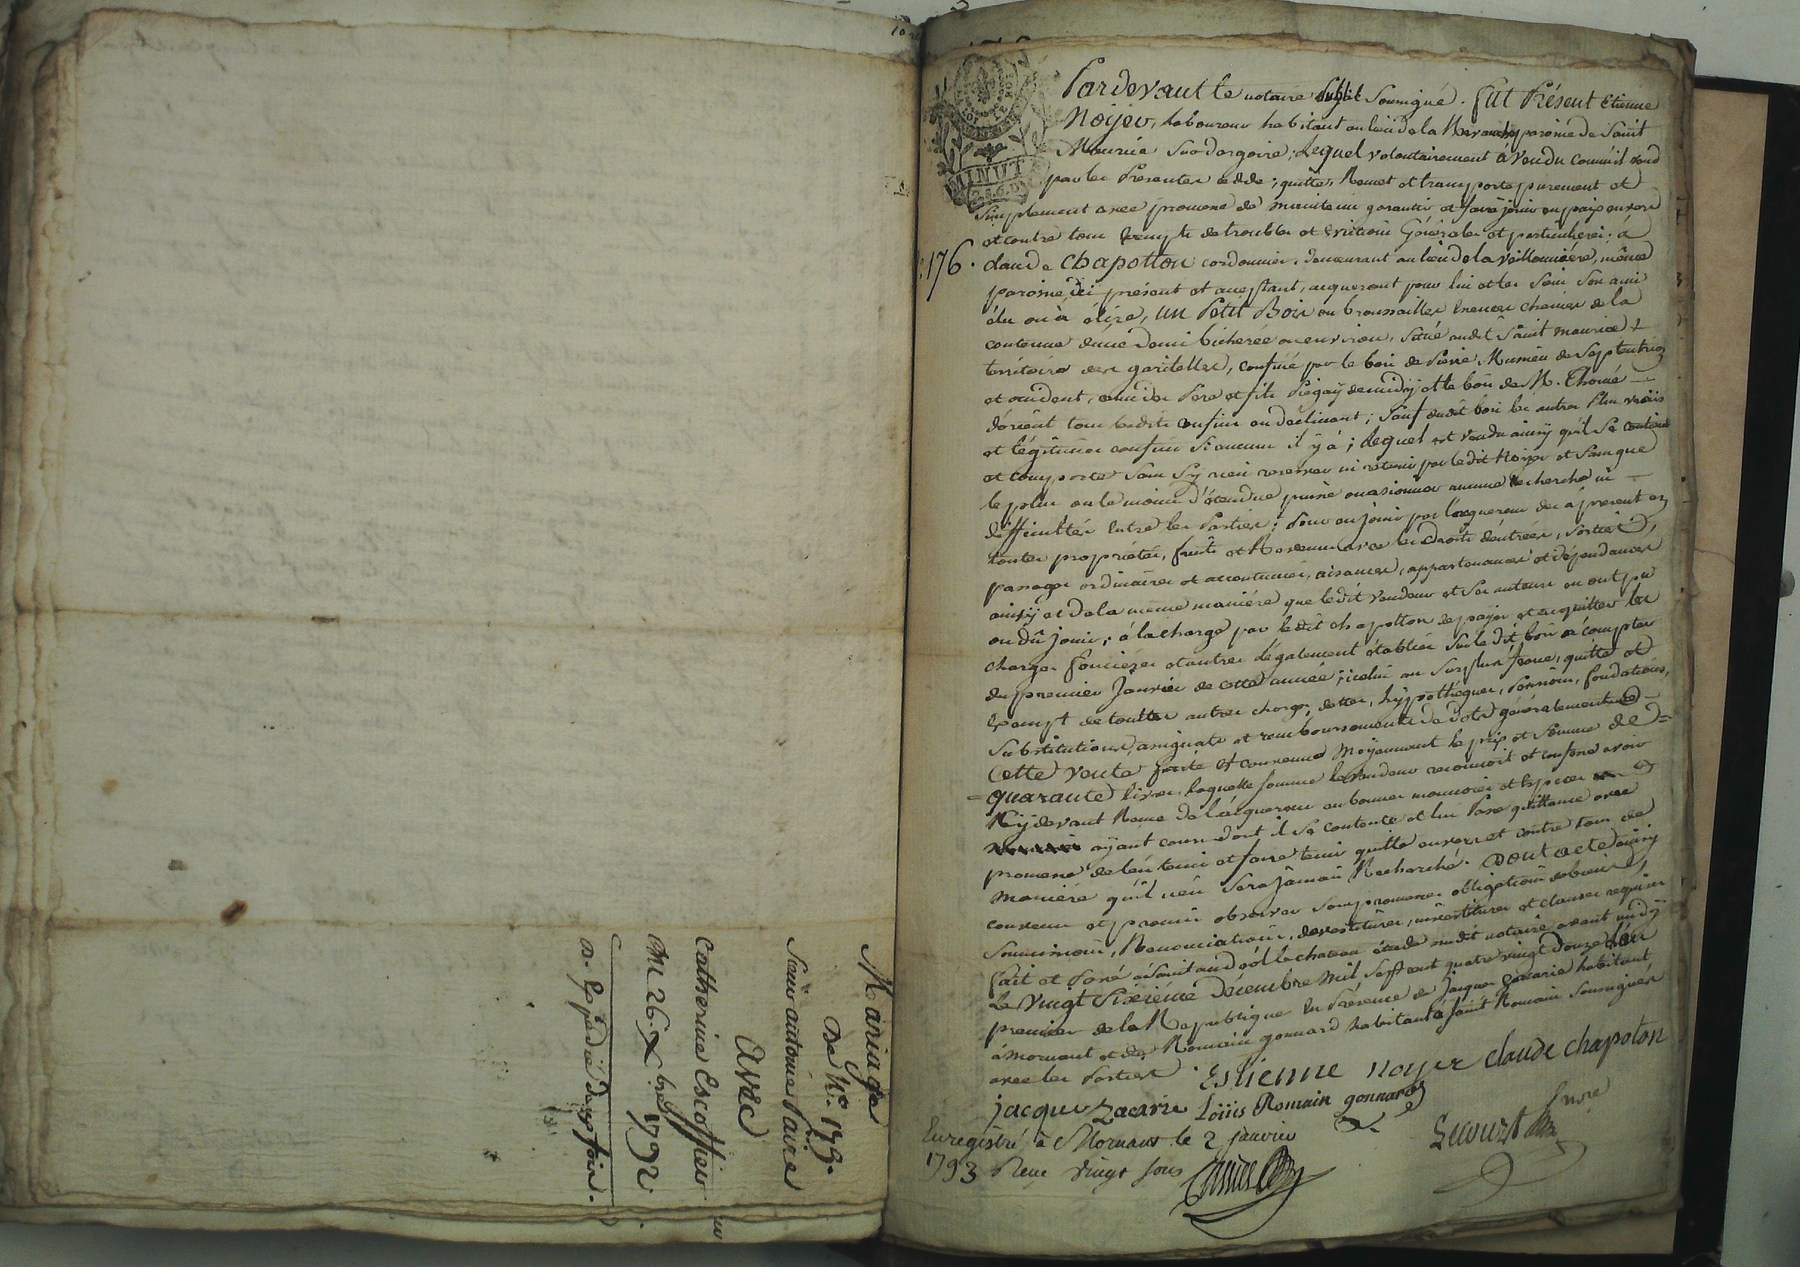 Mariage
De hre 179.
Sieur antoine Paire
Avec
Catherine Escoffier
Du 26. Xbre 1792
D. Expédié deux fois.
MINUTE
Pardevant le notaire Public Soussigné. fut Présent Etienne
Noyer, laboureur habitant au lieu de la paroisse de Saint
Maurice Sur dargoire; Lequel volontairement à vendu comme il vend
par les Presentes cedde, quitte, Remet et transporte purement et
Simplement avec promesse de maintenir garantir et faire jouir en paix envers
et contre tous exempte de troubles et évictions Générales et particulieres; à
176. claude Chapotton cordonnier, demeurant au lieu de la Vaillonnière, même
paroisse, ici présent et acceptant, acquerant pour lui et les Siens Son ami
élu ou à élire, un Petit Bois ou broussailles Essence chenier de la
contenue d'une demi bicherée ou environ, Situé audit Saint maurice
térritoire des gardelles, confiné par le bois de Pierre Mumieu de Septentrion
et occident, celui des Pere et fils Piegay de midy et le bois de M. Thomé
d'orient tous lesdits confins ou déclinant; Sauf dudit bois les autres Plus vrais
et légitimes confins Si aucuns il y à; Lequel est vendu ainsy qu'il Se contient
et comporte Sans S'y rien reserver ni retenir par ledit Noyer et Sans que
le plus ou le moins d'étendue puisse occasionner aucune Recherche ni
difficultés Entre les Parties; Pour en jouir par l'acquereur des à present en
toutes propriétés, fruits et Revenus avec les droits d'entrées, Sorties,
passages ordinaires et accoutumés, aisances, appartenances et dépendances
ainsy et de la même manière que ledit vendeur et Ses auteurs en ont pu
ou dû jouir; à la charge par ledit chapotton de payer et acquitter les
charges foncières et autres légalement établies Sur ledit bois à compter
du premier Janvier de cette année; icelui au Surplus franc, quitte et
Exempt de touttes autres charges, dettes, hypothéques, Pensions, fondations,
Substitutions, assignats et remboursements de dots généralement
Cette vente faite et convenue Moyennant le prix et Somme de
quarante livres, laquelle Somme le vendeur reconnoit et confesse avoir
cy devant Reçue de l'acquereur en bonnes monnoies et Espèces
ayant cours dont il Se contente et lui Passe quittance avec
promesse de l'en tenir et faire tenir quitte envers et contre tous de
maniére qu'il n'en Sera Jamais Recherché. Dont acte ainsy
convenu et promis observer Sous promesses obligations de biens
Soumissions, Renonciations, devestitures, investitures et clauses requises
fait et Passé à Saint andéol le chateau étude dudit notaire avant midy
Le Vingt Sixiéme Décembre Mil Sept cent quatre vingt Douze L'an
premier de la Republique En Présence de Jacques Zacarie habitant
à Mornant et de Romain gonnard habitant à Saint Romain Soussignés
avec les Parties.
Estienne noyer claude chapoton
jacque Zacarie Louis Romain gonnard
Enregistré à Mornant le 2 janvier
1793 Reçu vingt sous